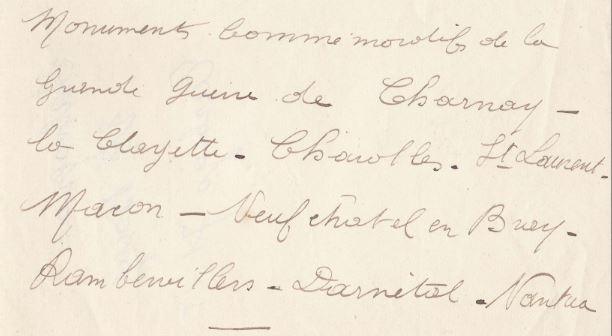 Monuments Commémoratifs de la
Grande Guerre de Charnay -
la Clayette - Charolles - St Laurent -
Macon - Neufchatel en Bray -
Rambervillers - Darnétal - Nantua